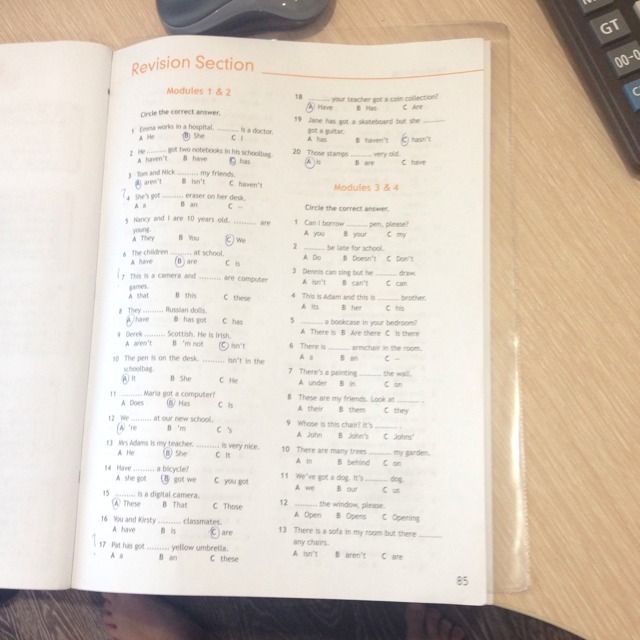 Revision Section
Modules 1 & 2
Circle the correct answer.
1 Emma works in a hospital. ........ is a doctor.
A He B She C I
2 He ........ got two notebooks in his schoolbag.
A haven't B have C has
3 Tom and Nick ........ my friends.
A aren't B isn't C haven't
4 She's got ........ eraser on her desk.
A a B an C –
5 Nancy and I are 10 years old. ........ are
young.
A They B You C We
6 The children ........ at school.
A have B are C is
7 This is a camera and ........ are computer
games.
A that B this C these
8 They ........ Russian dolls.
A have B has got C has
9 Derek ........ Scottish. He is Irish.
A aren't B 'm not C isn't
10 The pen is on the desk. ........ isn't in the
schoolbag.
A It B She C He
11 ........ Maria got a computer?
A Does B Has C Is
12 We ........ at our new school.
A 're B 'm C 's
13 Mrs Adams is my teacher. ........ is very nice.
A He B She C It
14 Have ........ a bicycle?
A she got B got we C you got
15 ........ is a digital camera.
A These B That C Those
16 You and Kirsty ........ classmates.
A have B is C are
17 Pat has got ........ yellow umbrella.
A a B an C these
18 ........ your teacher got a coin collection?
A Have B Has C Are
19 Jane has got a skateboard but she ........
got a guitar.
A has B haven't C hasn't
20 Those stamps ........ very old.
A is B are C have
Modules 3 & 4
Circle the correct answer.
1 Can I borrow ........ pen, please?
A you B your C my
2 ........ be late for school.
A Do B Doesn't C Don't
3 Dennis can sing but he ........ draw.
A isn't B can't C can
4 This is Adam and this is ........ brother.
A its B her C his
5 ........ a bookcase in your bedroom?
A There is B Are there C Is there
6 There is ........ armchair in the room.
A a B an C –
7 There's a painting ........ the wall.
A under B in C on
8 These are my friends. Look at ........
A their B them C they
9 Whose is this chair? It's ........
A John B John's C Johns'
10 There are many trees ........ my garden.
A in B behind C on
11 We've got a dog. It's ........ dog.
A we B our C us
12 ........ the window, please.
A Open B Opens C Opening
13 There is a sofa in my room but there ........
any chairs.
A isn't B aren't C are
85
GT